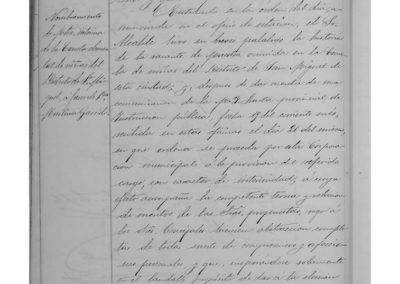 Nombramiento
de
interina
de la Escuela elemen
tal de niñas del
Distrito de Sn Mi
guel, a favor de Dª
Martina Garrido.
Entrando en la orden del día, a
nunciada en el oficio de citación, el Sr.
Alcalde hizo en breves palabras la historia
de la vacante de Maestra ocurrida en la Escue
la de niñas del Distrito de San Miguel de
esta ciudad; y, despues de dar cuenta de una
comunicacion de la Junta provincial de
Instruccion pública, fecha 19 del corriente mes,
recibida en estas oficinas el dia 21 del mismo,
en que ordena se proceda por esta Corpora
cion municipal a la provision del referido
cargo, con caracter de interinidad, a cuyo
efecto acompaña la competente terna y relacion
de meritos de las Sras. propuestas, rogó á
los Sres. Concejales hicieran abstraccion comple
ta de toda suerte de compromisos y afecciones
personales y que, inspirándose solamente
en el laudable propósito de dar á la